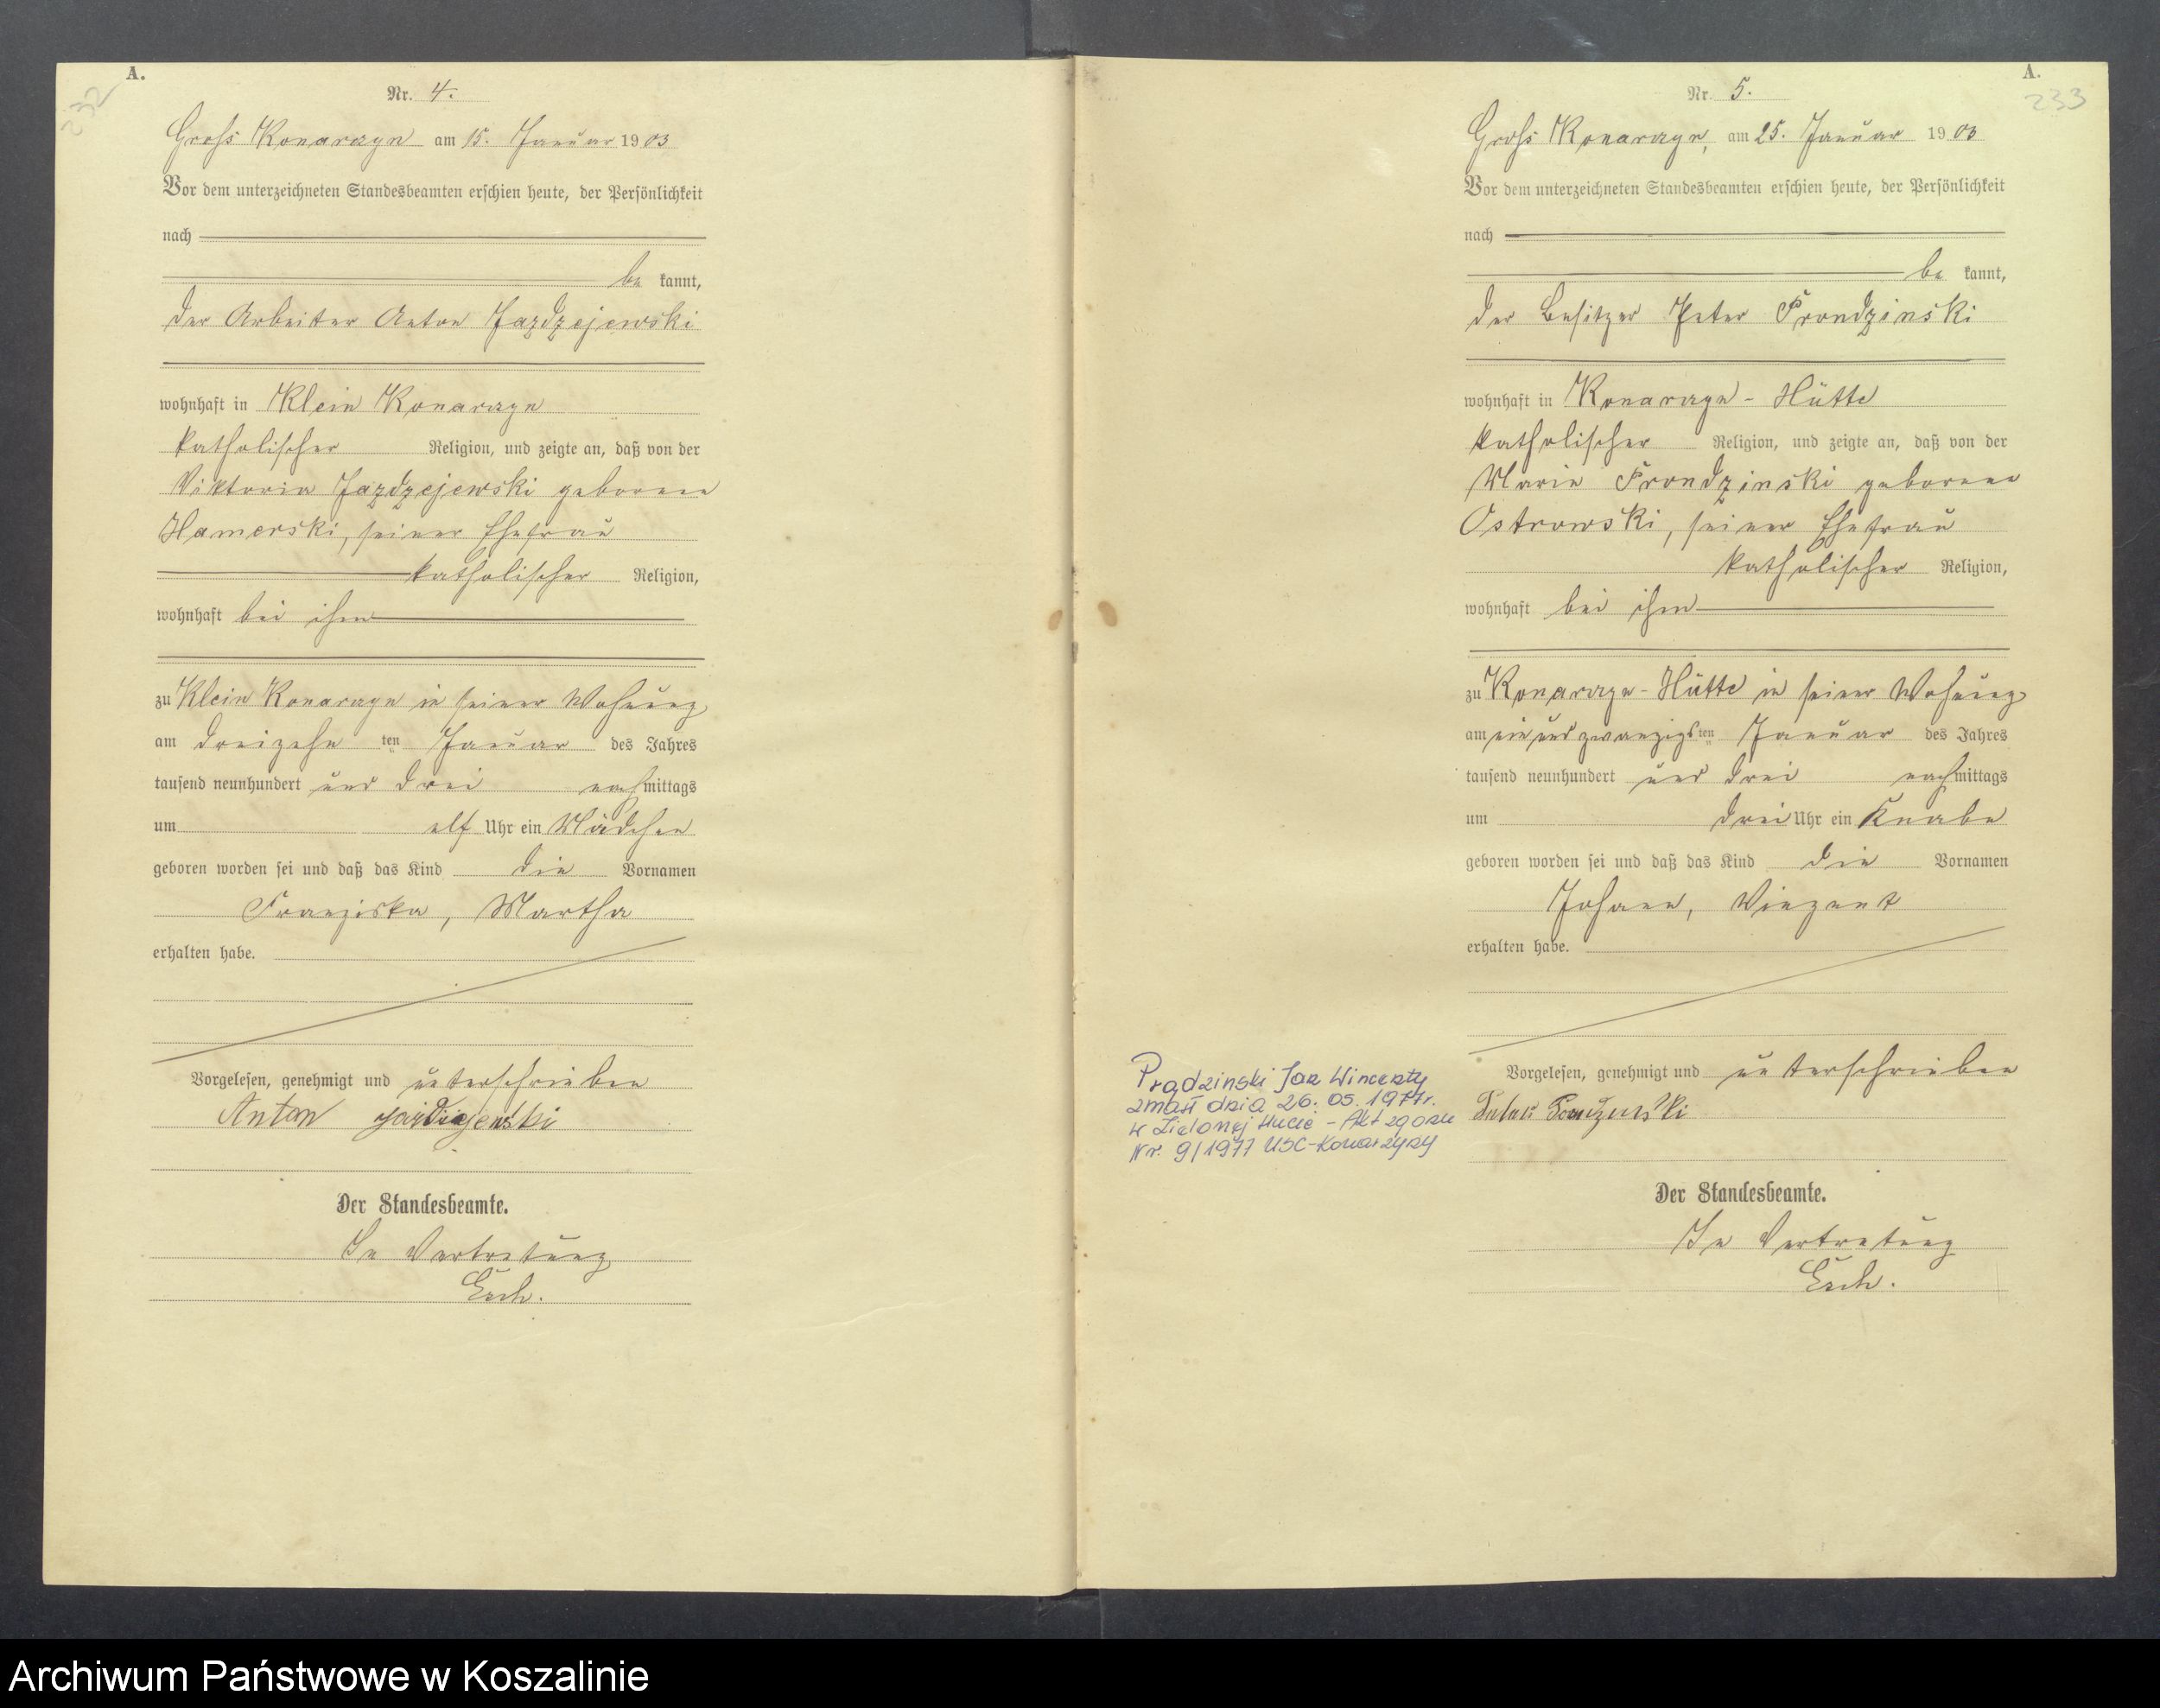 A.
232
Nr. 4.
Gross Konarzyn am 15. Januar 1903
Vor dem unterzeichneten Standesbeamten erschien heute, der Persönlichkeit
nach
be kannt,
der Arbeiter Anton Jazdzejewski
wohnhaft in Klein Konarzyn
katholischer Religion, und zeigte an, daß von der
Viktoria Jazdzejewski geborene
Hamerski, seiner Ehefrau
katholischer Religion,
wohnhaft bei ihm
zu Klein Konarzyn in seiner Wohnung
am dreizehn ten Januar des Jahres
tausend neunhundert und drei nachmittags
um elf Uhr ein Mädchen
geboren worden sei und daß das Kind die Vornamen
Franziska, Martha
erhalten habe.
Vorgelesen, genehmigt und unterschrieben
Anton
Der Standesbeamte.
In Vertretung
A.
233
Nr. 5.
Gross Konarzyn, am 25. Januar 1903
Vor dem unterzeichneten Standesbeamten erschien heute, der Persönlichkeit
nach
be kannt,
der Besitzer Peter Prondzinski
wohnhaft in Konarzyn-Hütte
katholischer Religion, und zeigte an, daß von der
Marie Prondzinski geborene
Ostrowski, seiner Ehefrau
katholischer Religion,
wohnhaft bei ihm
zu Konarzyn-Hütte in seiner Wohnung
am einundzwanzigsten Januar des Jahres
tausend neunhundert und drei nachmittags
um drei Uhr ein Knabe
geboren worden sei und daß das Kind die Vornamen
Johann, Vinzent
erhalten habe.
Vorgelesen, genehmigt und unterschrieben
Der Standesbeamte.
In Vertretung
Prądzinski Jan Wincenty
zmarł dnia 26.05.1977r.
w Zielonej Hucie - Akt zgonu
Nr. 9/1977 USC-Konarzyny
Archiwum Państwowe w Koszalinie